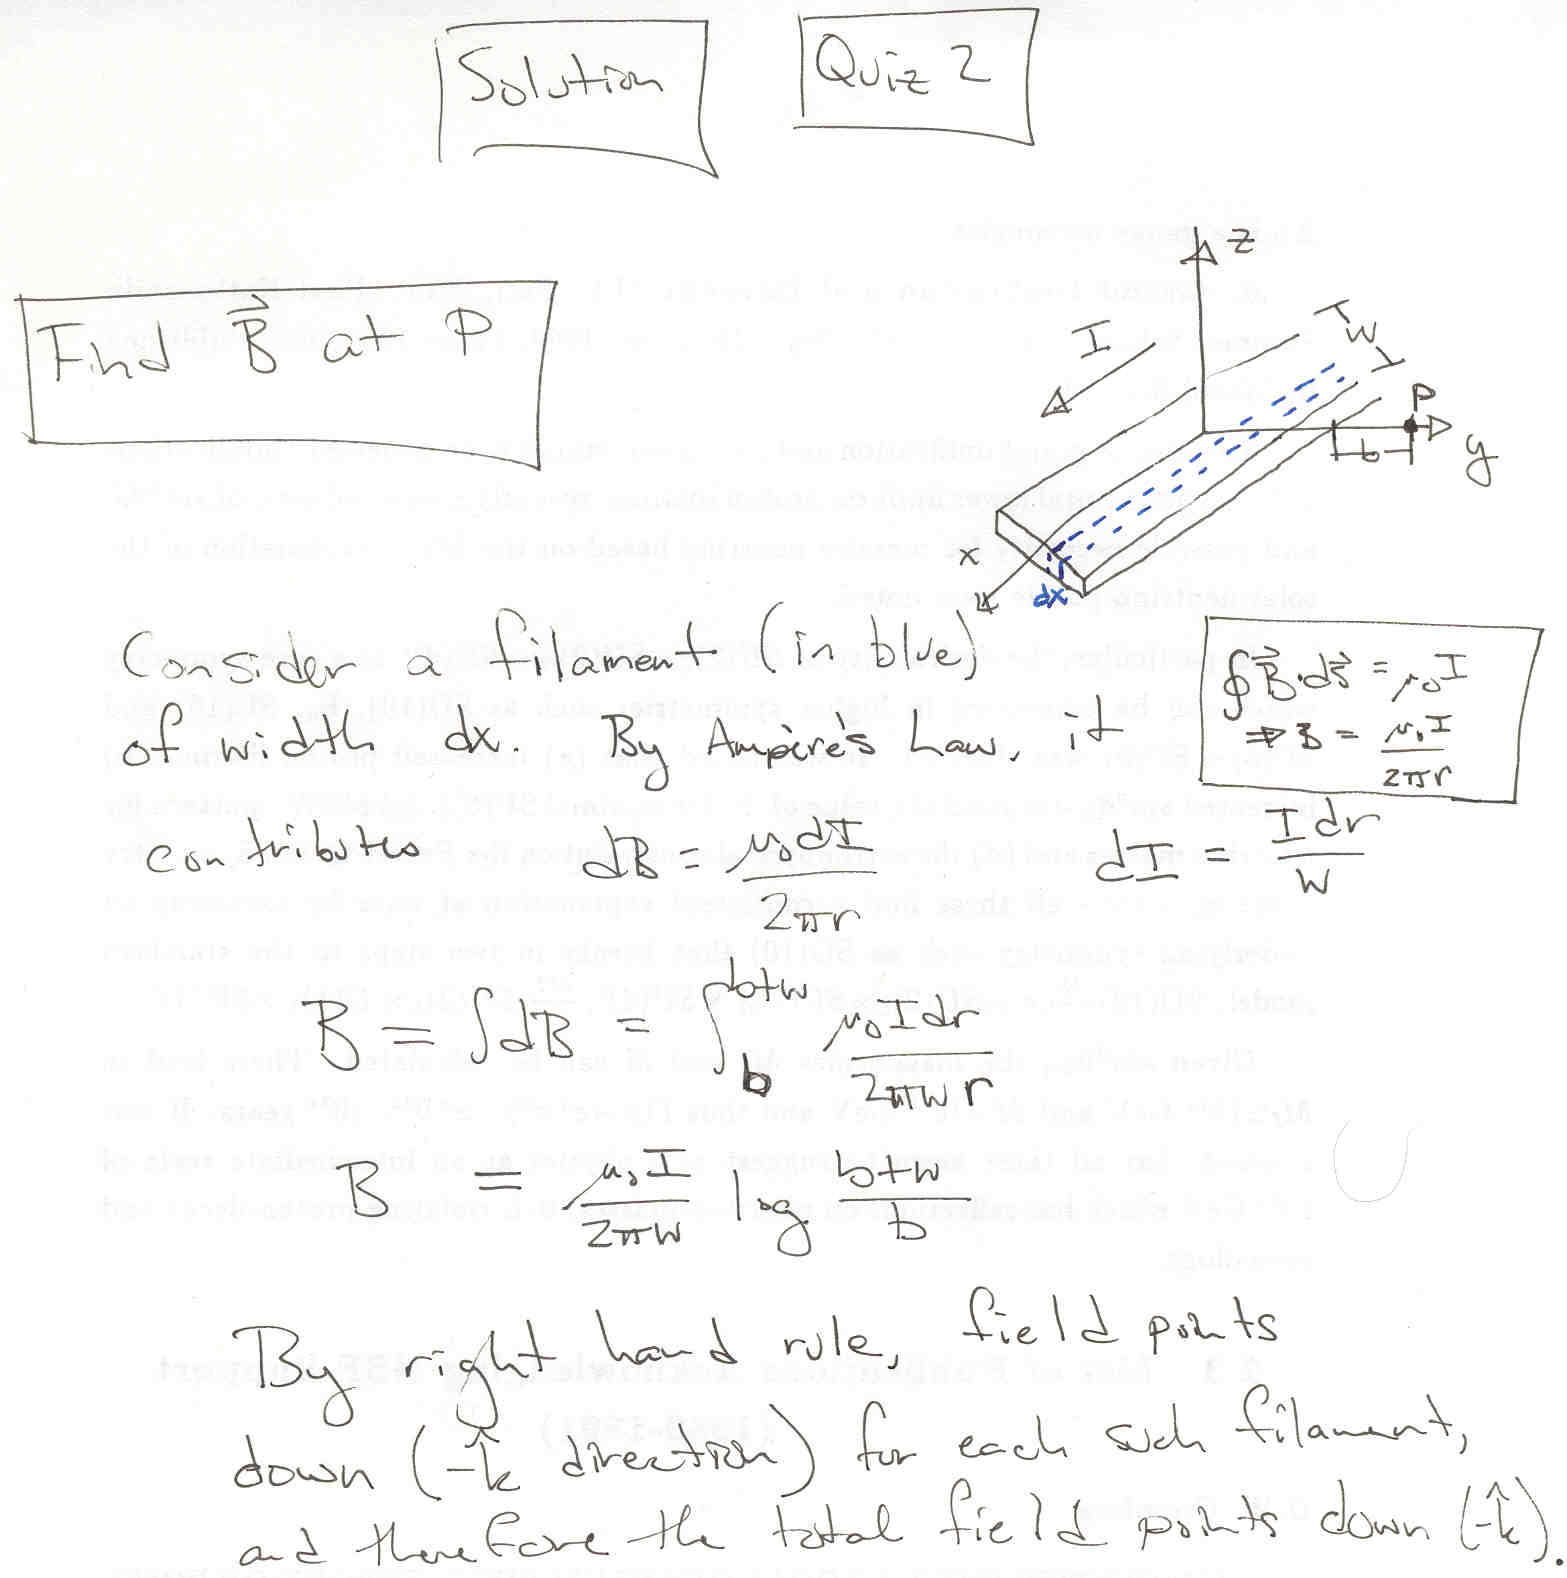 Solution
Quiz 2
Find B⃗ at P
z
I
W
P
b
y
x
dx
Consider a filament (in blue)
of width dx. By Ampere's Law, it
∮B⃗·ds⃗ = μ₀I
⇒ B = μ₀I / 2πr
contributes dB = μ₀dI / 2πr dI = I dr / W
B = ∫dB = ∫_b^{b+w} μ₀I dr / 2πwr
B = μ₀I / 2πw log (b+w) / b
By right hand rule, field points
down (-k̂ direction) for each such filament,
and therefore the total field points down (-k̂).